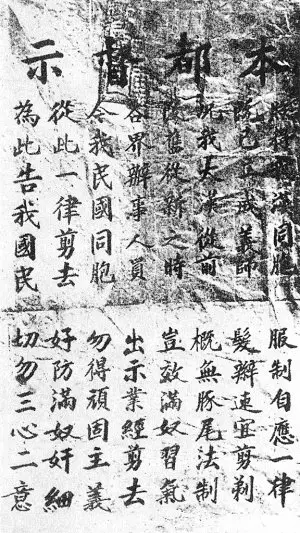 本都督示
照得漢同胞服制自應一律
已成義師髮辮速宜剪剃
況我大漢從前概無豚尾法制
舊從新之時豈效滿奴習氣
各界辦事人員出示業經剪去
令我民國同胞勿得頑固主義
從此一律剪去好防滿奴奸細
為此告我國民切勿三心二意